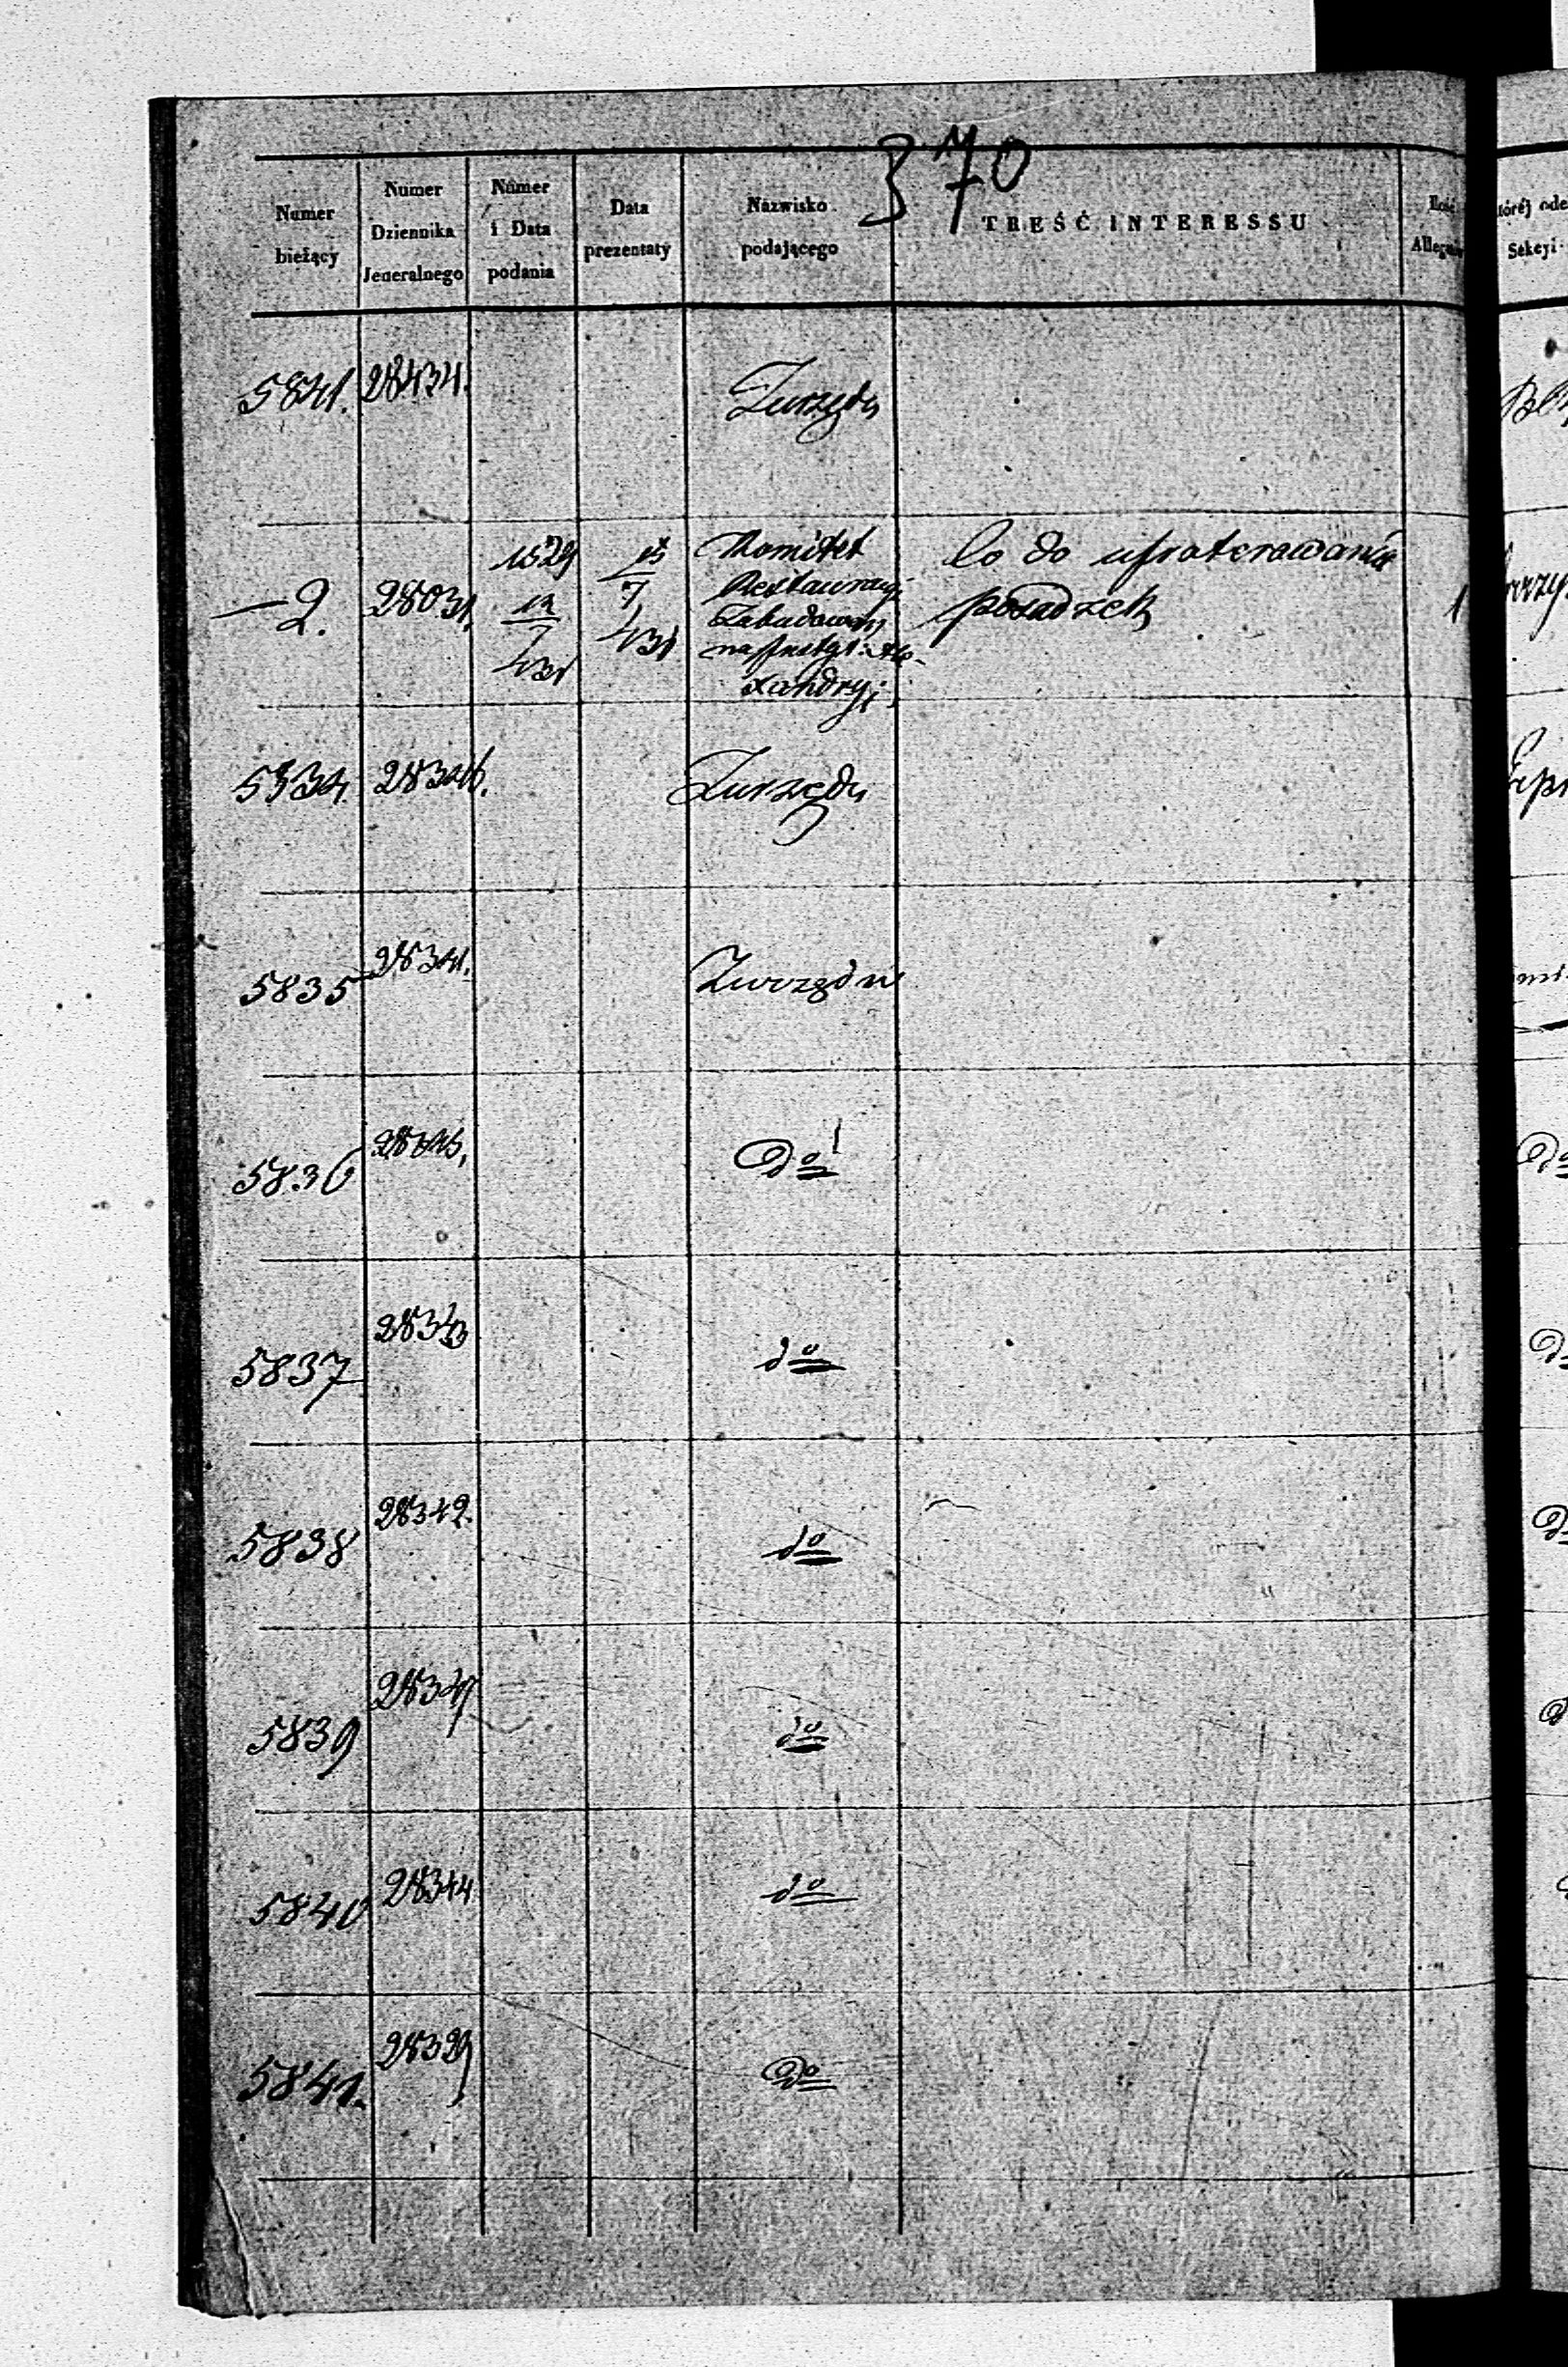 370
Numer bieżący | Numer Dziennika Jeneralnego | Numer i Data podania | Data prezentaty | Nazwisko podającego | TREŚĆ INTERESSU | Ilość
5841. 28434. Zurzędu
2. 28031. 1529 12/7 831 15/7 831 Komitet Restauracyi Zabudowań na Instyt: Ale- xandryj: Co do ufroterowania posadzek 1
28346. Zurzędu
5835 28341. Zurzędu
5836 do
5837 28343 do
5838 28342. do
5839 28347 do
5840 28344 do
5841. 28329 do